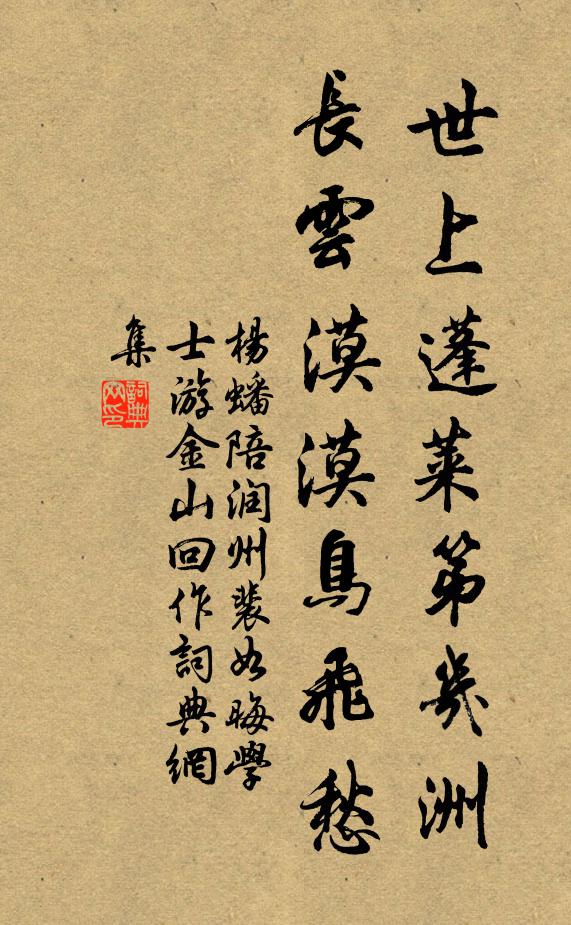 世上蓬萊第幾洲
長雲漠漠鳥飛愁
楊蟠陪润州裴如晦學
士游金山回作詞典網
集
詞典
网印